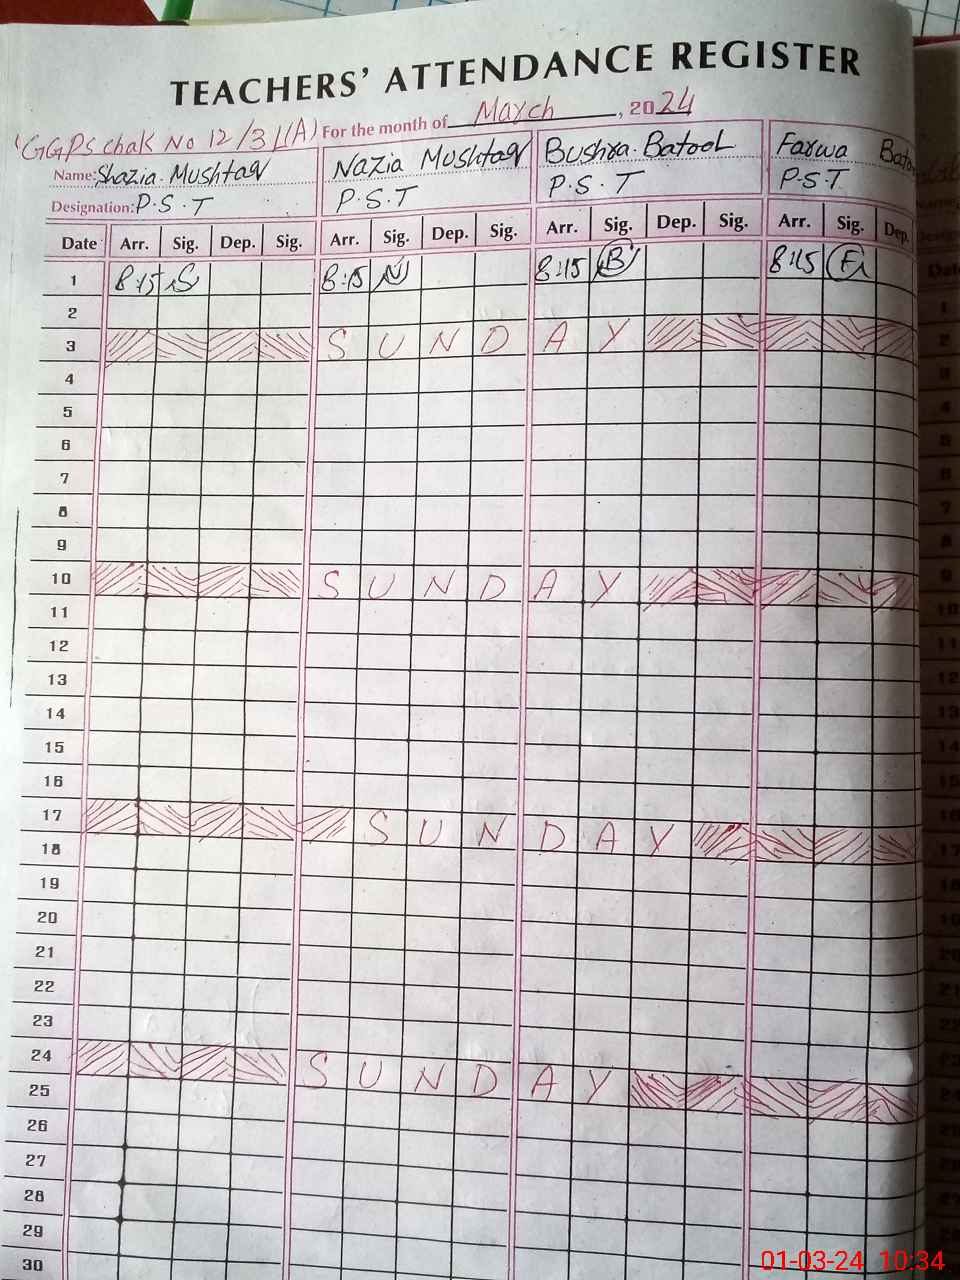 TEACHERS' ATTENDANCE REGISTER
GGPS chak No 12/3L(A) For the month of March, 2024
Name: Shazia Mushtaq Nazia Mushtaq Bushra Batool Farwa Batoo
Designation: P.S.T P.S.T P.S.T P.S.T
Date Arr. Sig. Dep. Sig. Arr. Sig. Dep. Sig. Arr. Sig. Dep. Sig. Arr. Sig. Dep.
1 8:15 S 8:15 N 8:15 B 8:15 F
2
3 SUNDAY
4
5
6
7
8
9
10 SUNDAY
11
12
13
14
15
16
17 SUNDAY
18
19
20
21
22
23
24 SUNDAY
25
26
27
28
29
30
01-03-24 10:34